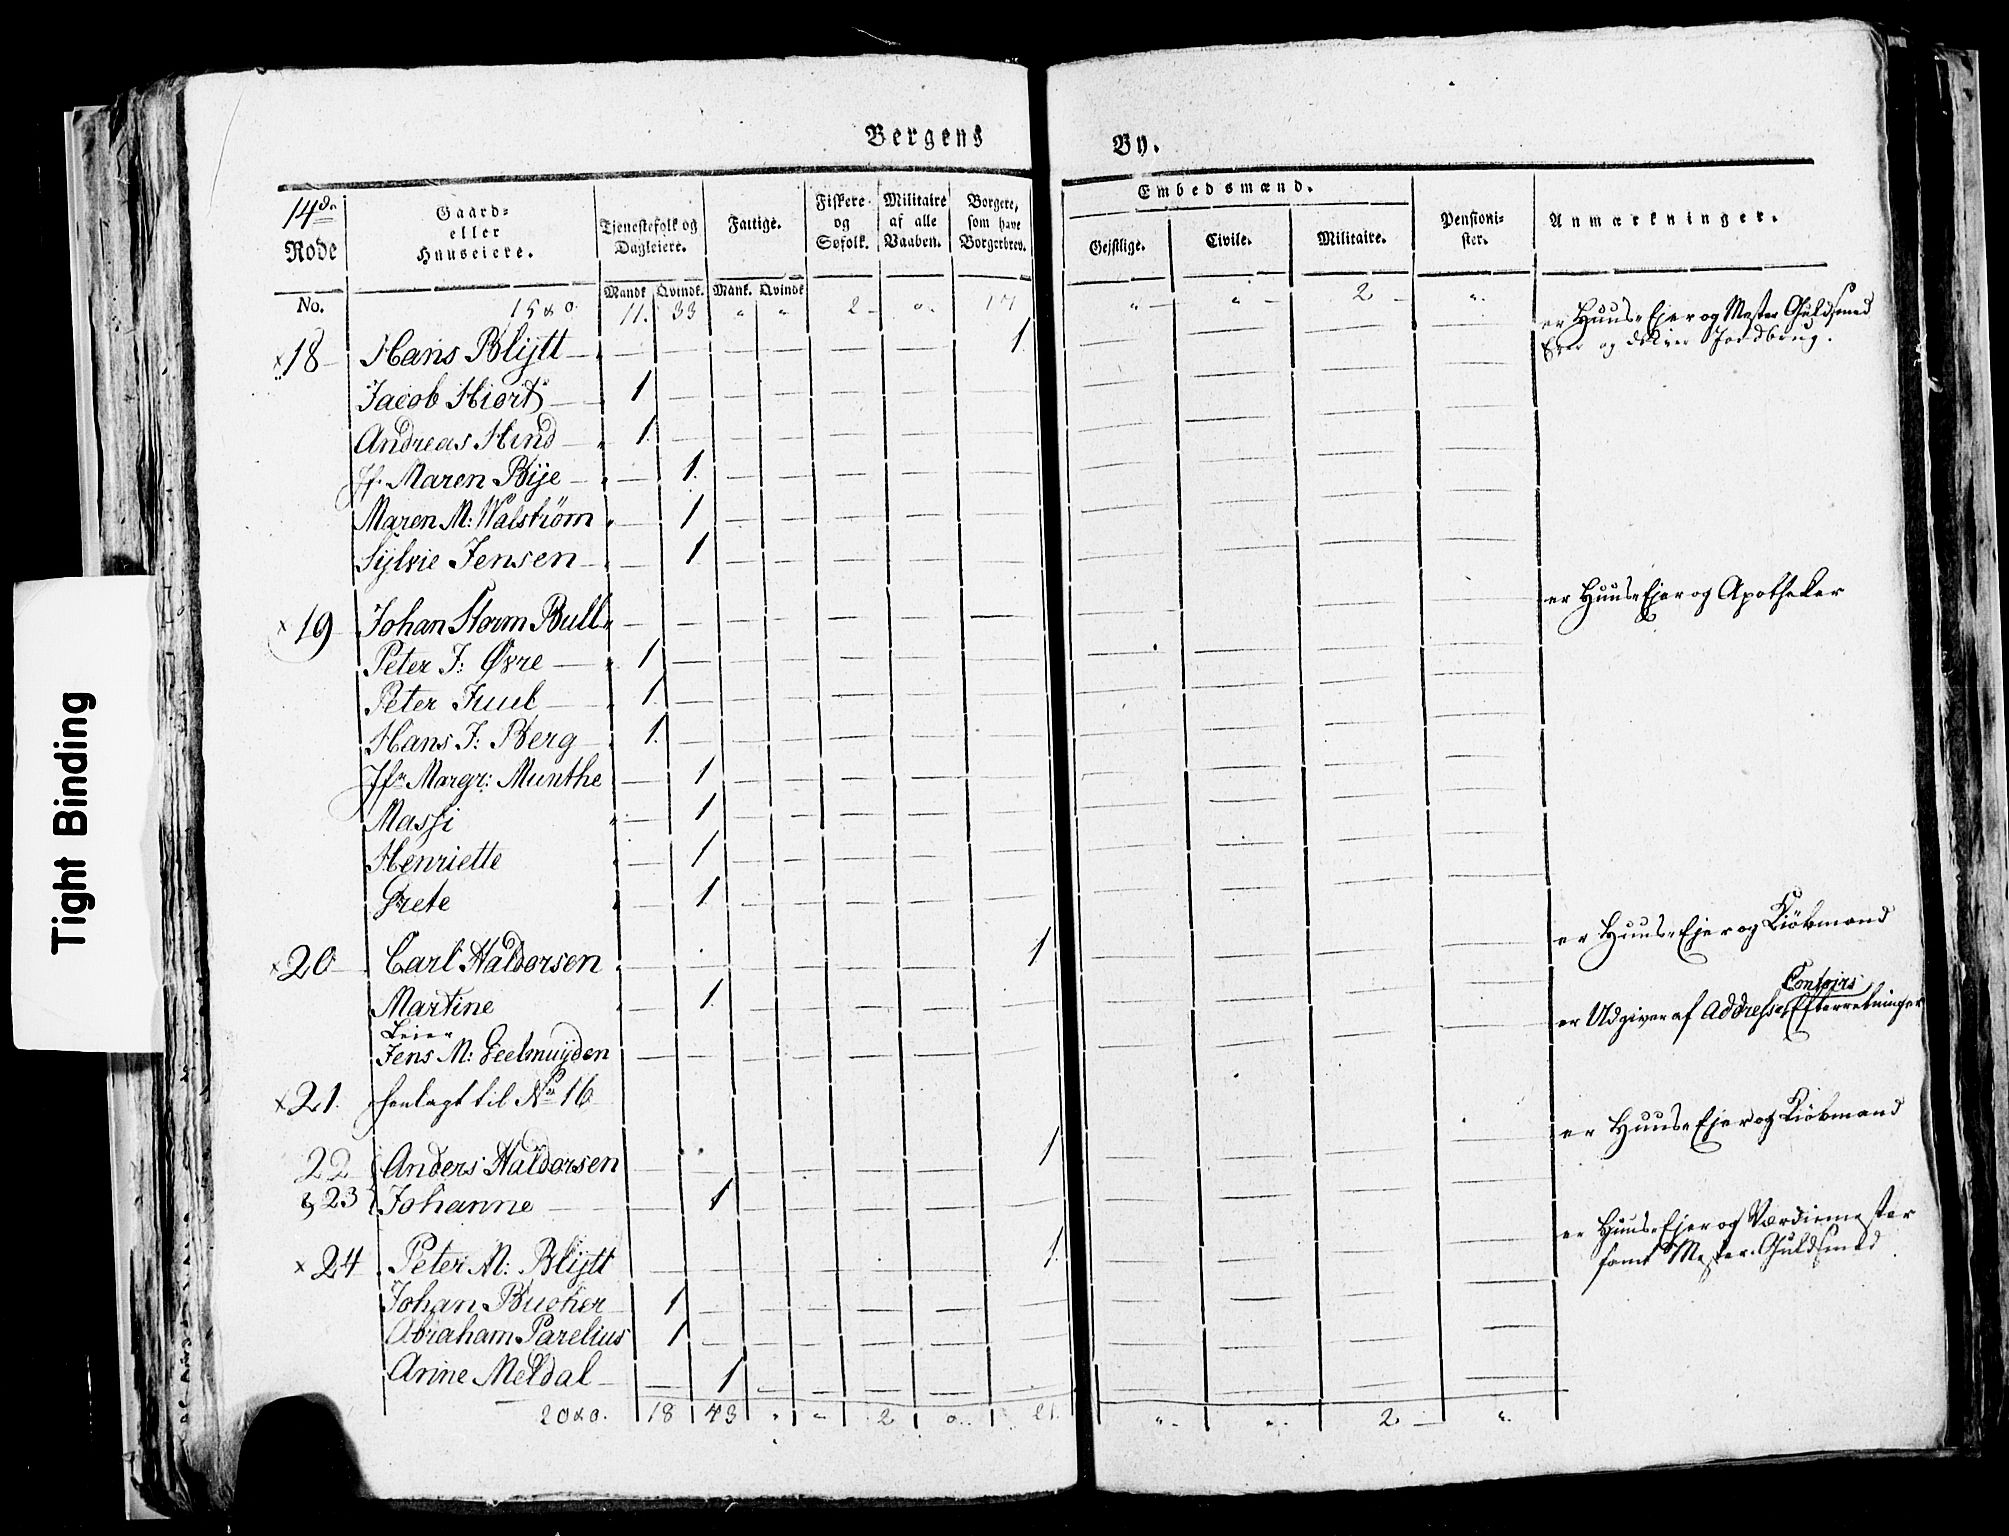 Bergens By.
14de Rode
Gaard- eller Huuseiere.
Tjenestefolk og Dagleiere.
Fattige.
Fiskere og Søfolk.
Militaire af alle Vaaben.
Borgere, som have Borgerbrev.
Embedsmænd.
Gejstlige. Civile. Militaire.
Pensionister.
Anmærkninger.
No. Mandk. Qvindk. Mank. Qvindk.
11. 33 " " 2 " 17 " " 2 "
x 18 Hans Blijtt 1 er Huus-Ejer og Mester Guldsmed
Ejer og driver Jordbrug.
Jacob Hiort 1
Andreas Hind 1.
Jf. Maren Bije 1.
Maren M: Walstrøm 1
Sijlvie Jensen 1
x 19 Johan Storm Bull er Huus-Ejer og Apotheker
Peter J: Øvre 1
Peter Juul 1.
Hans J: Berg 1.
Jfr Margr: Munthe 1
Massi 1
Henriette 1
Grete 1
x 20 Carl Haldorsen 1 er Huus-Ejer og Kiöbmand
Martine 1.
Leier
Jens M: Geelmuijden er Udgiver af Addresse Contoirs Efterretninger
x 21. henlagt til No 16
22 Anders Haldorsen 1 er Huus-Ejer og Kiöbmand
& 23 Johanne 1
x 24 Peter M: Blijtt 1. er Huus-Ejer og Værdiemester
samt Mester-Guldsmed
Johan Bucher 1
Abraham Parelius 1
Arine Meldal 1
18 43 " " 2 " 21. " " 2 "
Tight Binding